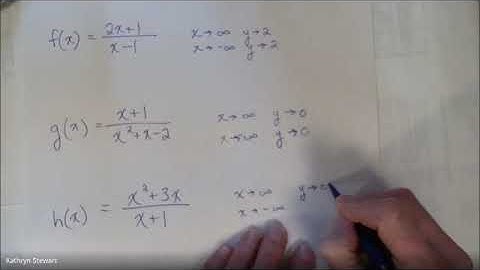 f(x) = 2x+1 / x-1 x→∞ y→2
x→-∞ y→2
g(x) = x+1 / x²+x-2 x→∞ y→0
x→-∞ y→0
h(x) = x²+3x / x+1 x→∞ y→
x→-∞
Kathryn Stewart